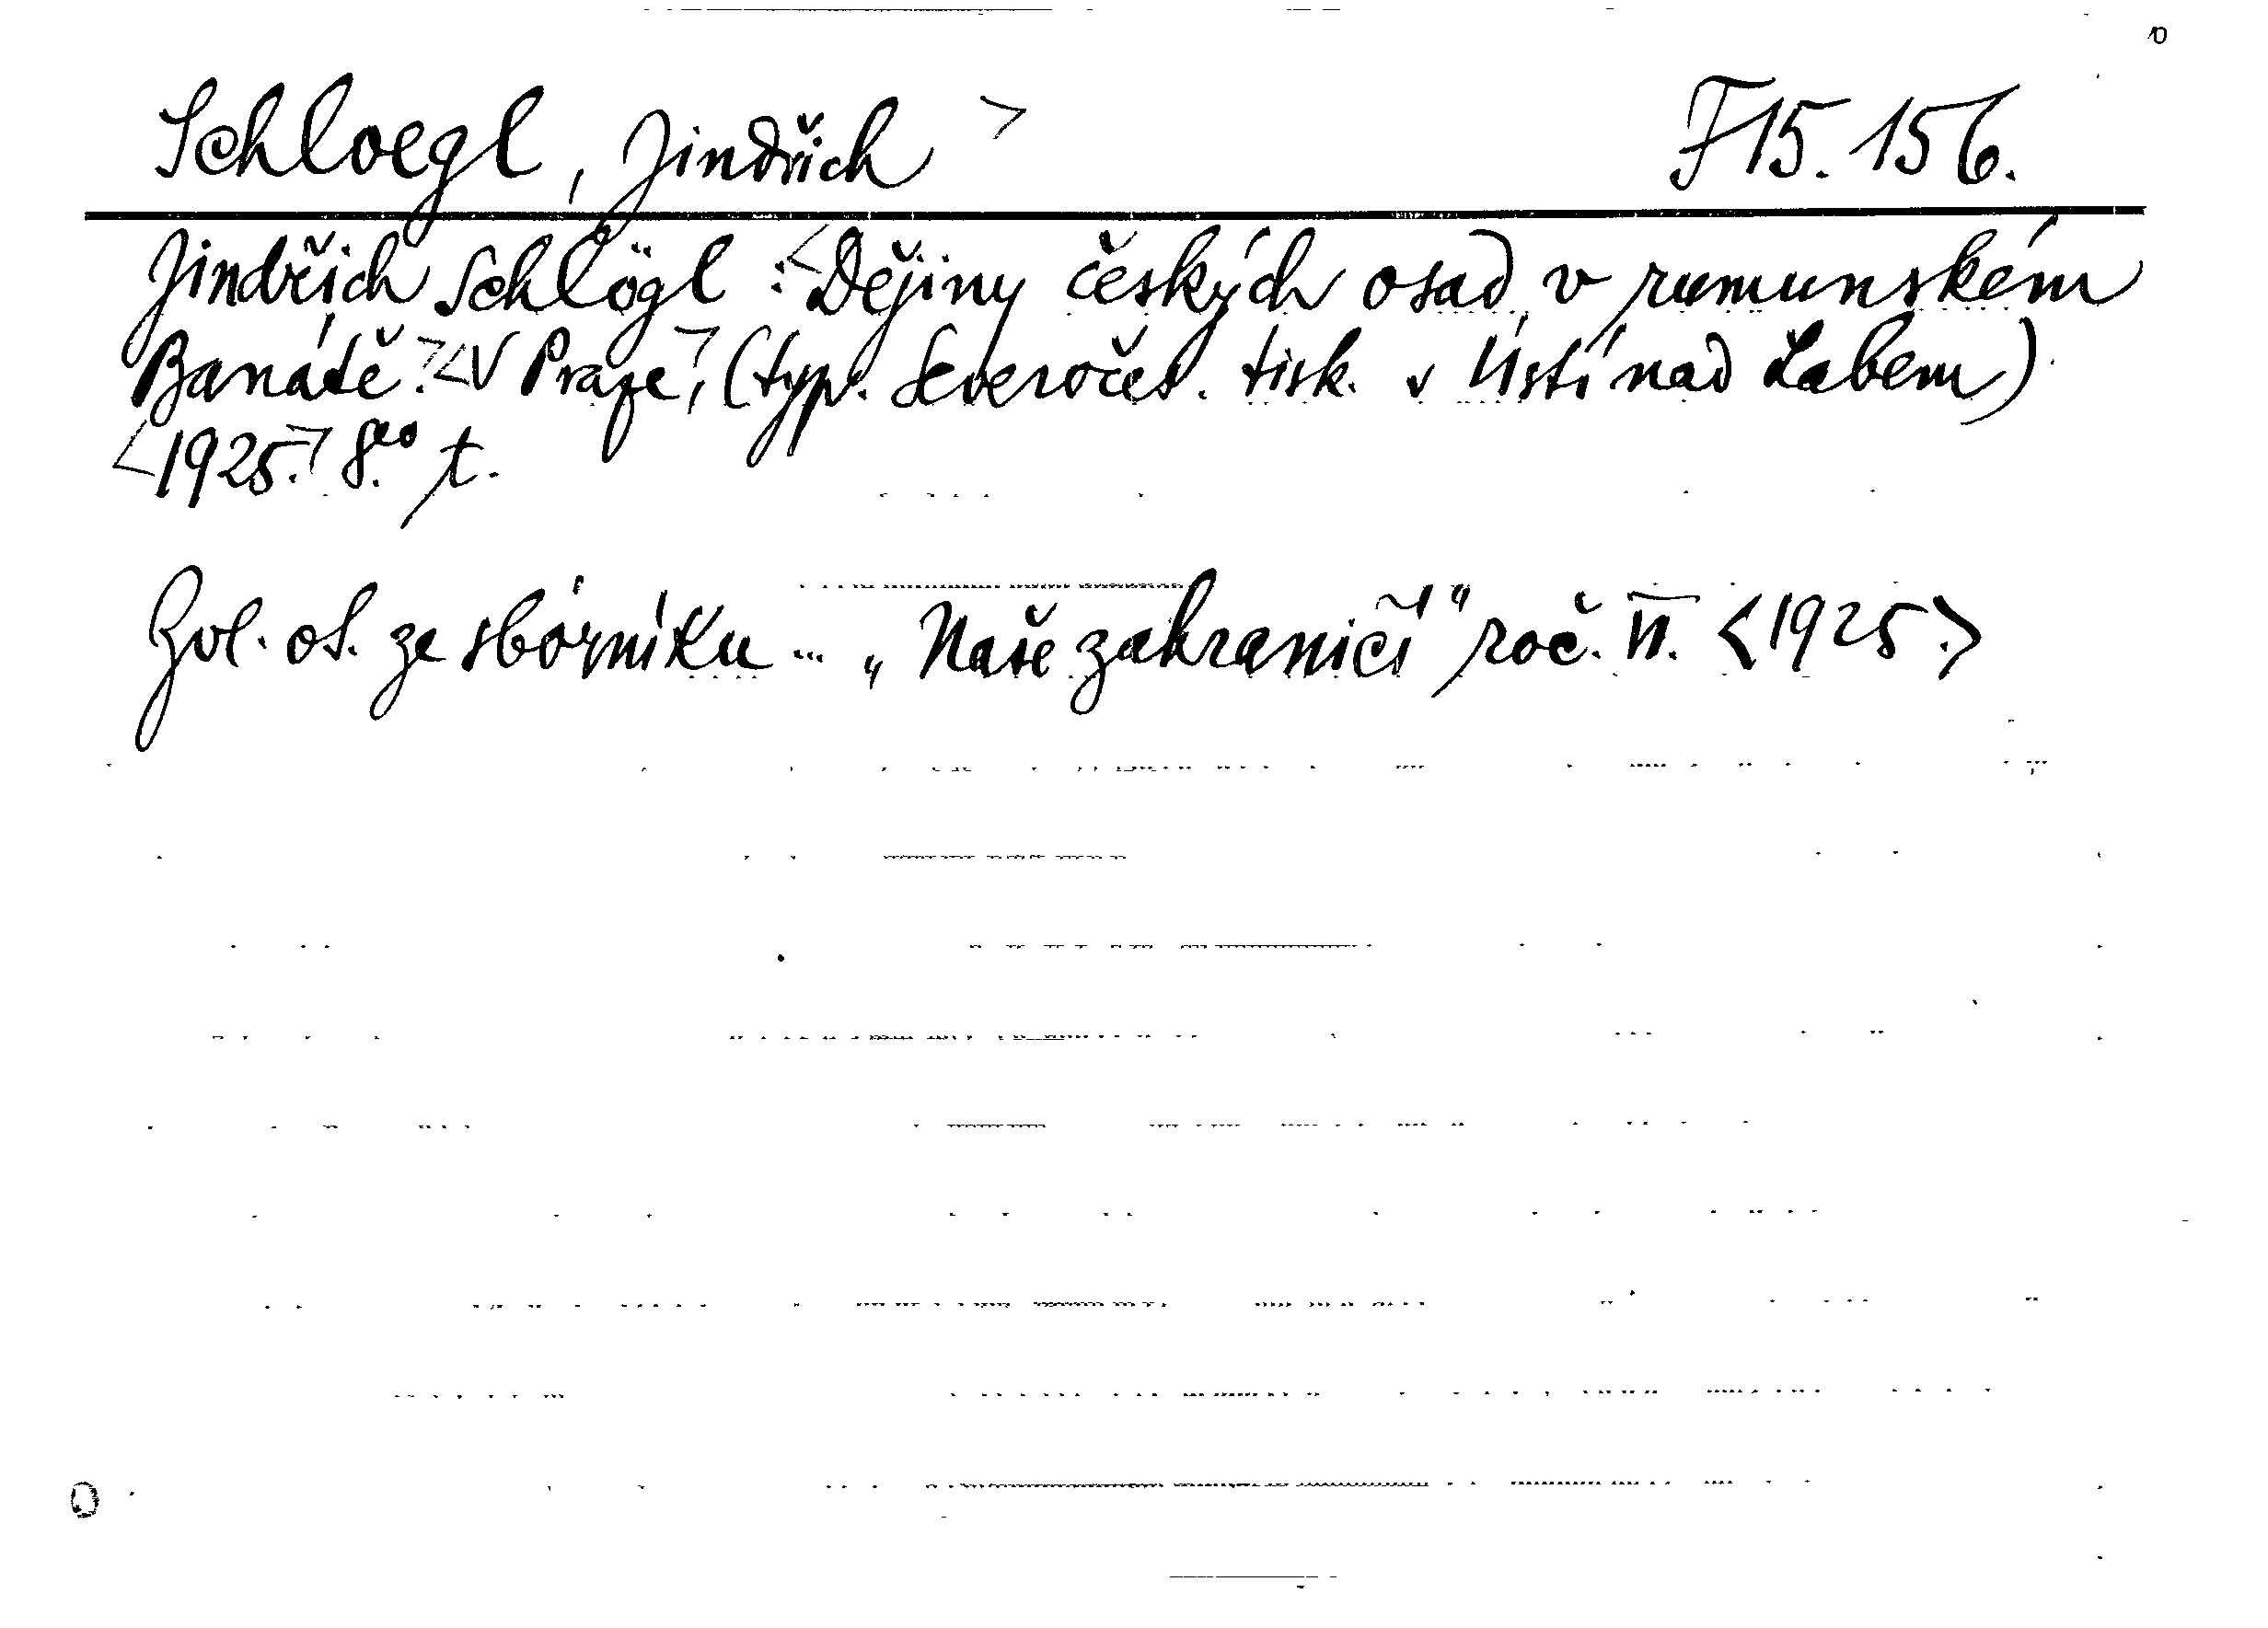 Schloegl, Jindřich > F 15.156.
Jindřich Schlögl : <Dějiny českých osad v rumunském
Banátě.> <V Praze>, (typ. Severočes. tisk. v Ústí nad Labem)
<1925.> 8.° t.
Zvl. ot. ze sborníku ... „Naše zahraničí" roč. VI. <1925.>